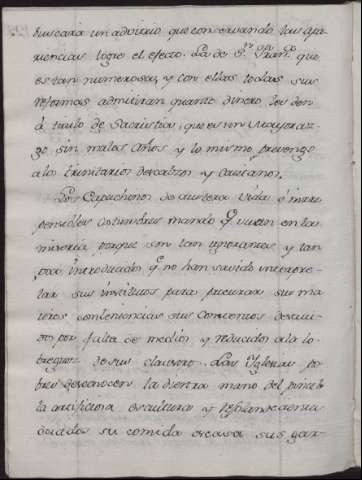 buscara un advitrio que conservando las apa
riencias logre el efecto. La de Sn. Fran.co que
es tan numerosa, y con ellas todas sus
reformas admitiran quanto dinero les den
á titulo de Sacristia, que es un Mayoraz-
go sin malos años y lo mismo prevengo
a los trinitarios descalzos y Cayetanos.
Los Capuchinos de austera vida é irre
pensibles costumbres mando qe. vivan en la
miseria porque son tan ygnorantes y tan
poco introducidos qe. no han savido interpre-
tar sus institutos para procurar sus ma
iores combeniencias sus Conventos
por falta de medios y reducidos a la lo-
breguez de sus claustro. Las Yglesias po-
bres desconocen la diestra mano del pincel
la artificiosa escultura y
su comida escasa sus gar-